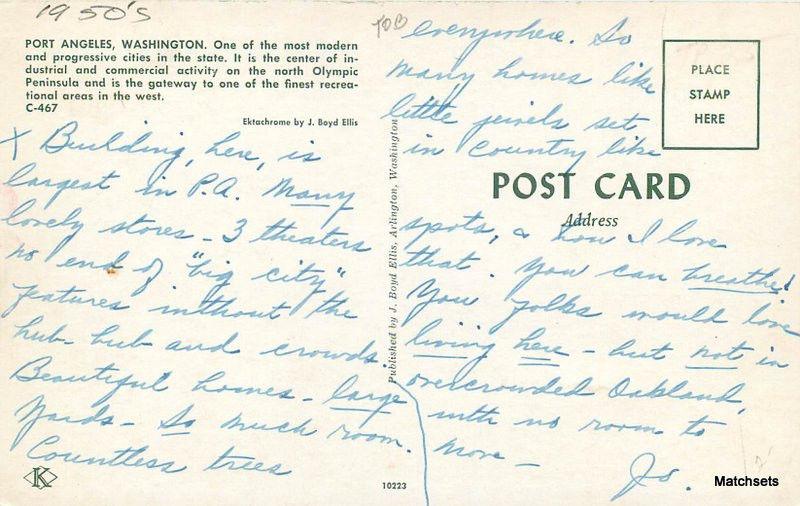 1950's
PORT ANGELES, WASHINGTON. One of the most modern
and progressive cities in the state. It is the center of in-
dustrial and commercial activity on the north Olympic
Peninsula and is the gateway to one of the finest recrea-
tional areas in the west.
C-467
Ektachrome by J. Boyd Ellis
X Building, here, is
largest in P.A. Many
lovely stores - 3 theaters
no end of "big city"
features without the
hub-bub and crowds.
Beautiful homes - large
yards - So much room.
Countless trees
K
Published by J. Boyd Ellis, Arlington, Washington
10223
everywhere. So
many homes like
little jewels set,
in country like
PLACE
STAMP
HERE
POST CARD
Address
spots, & how I love
that. You can breathe!
You folks would love
living here - but not in
overcrowded Oakland,
with no room to
more -
Jo.
Matchsets